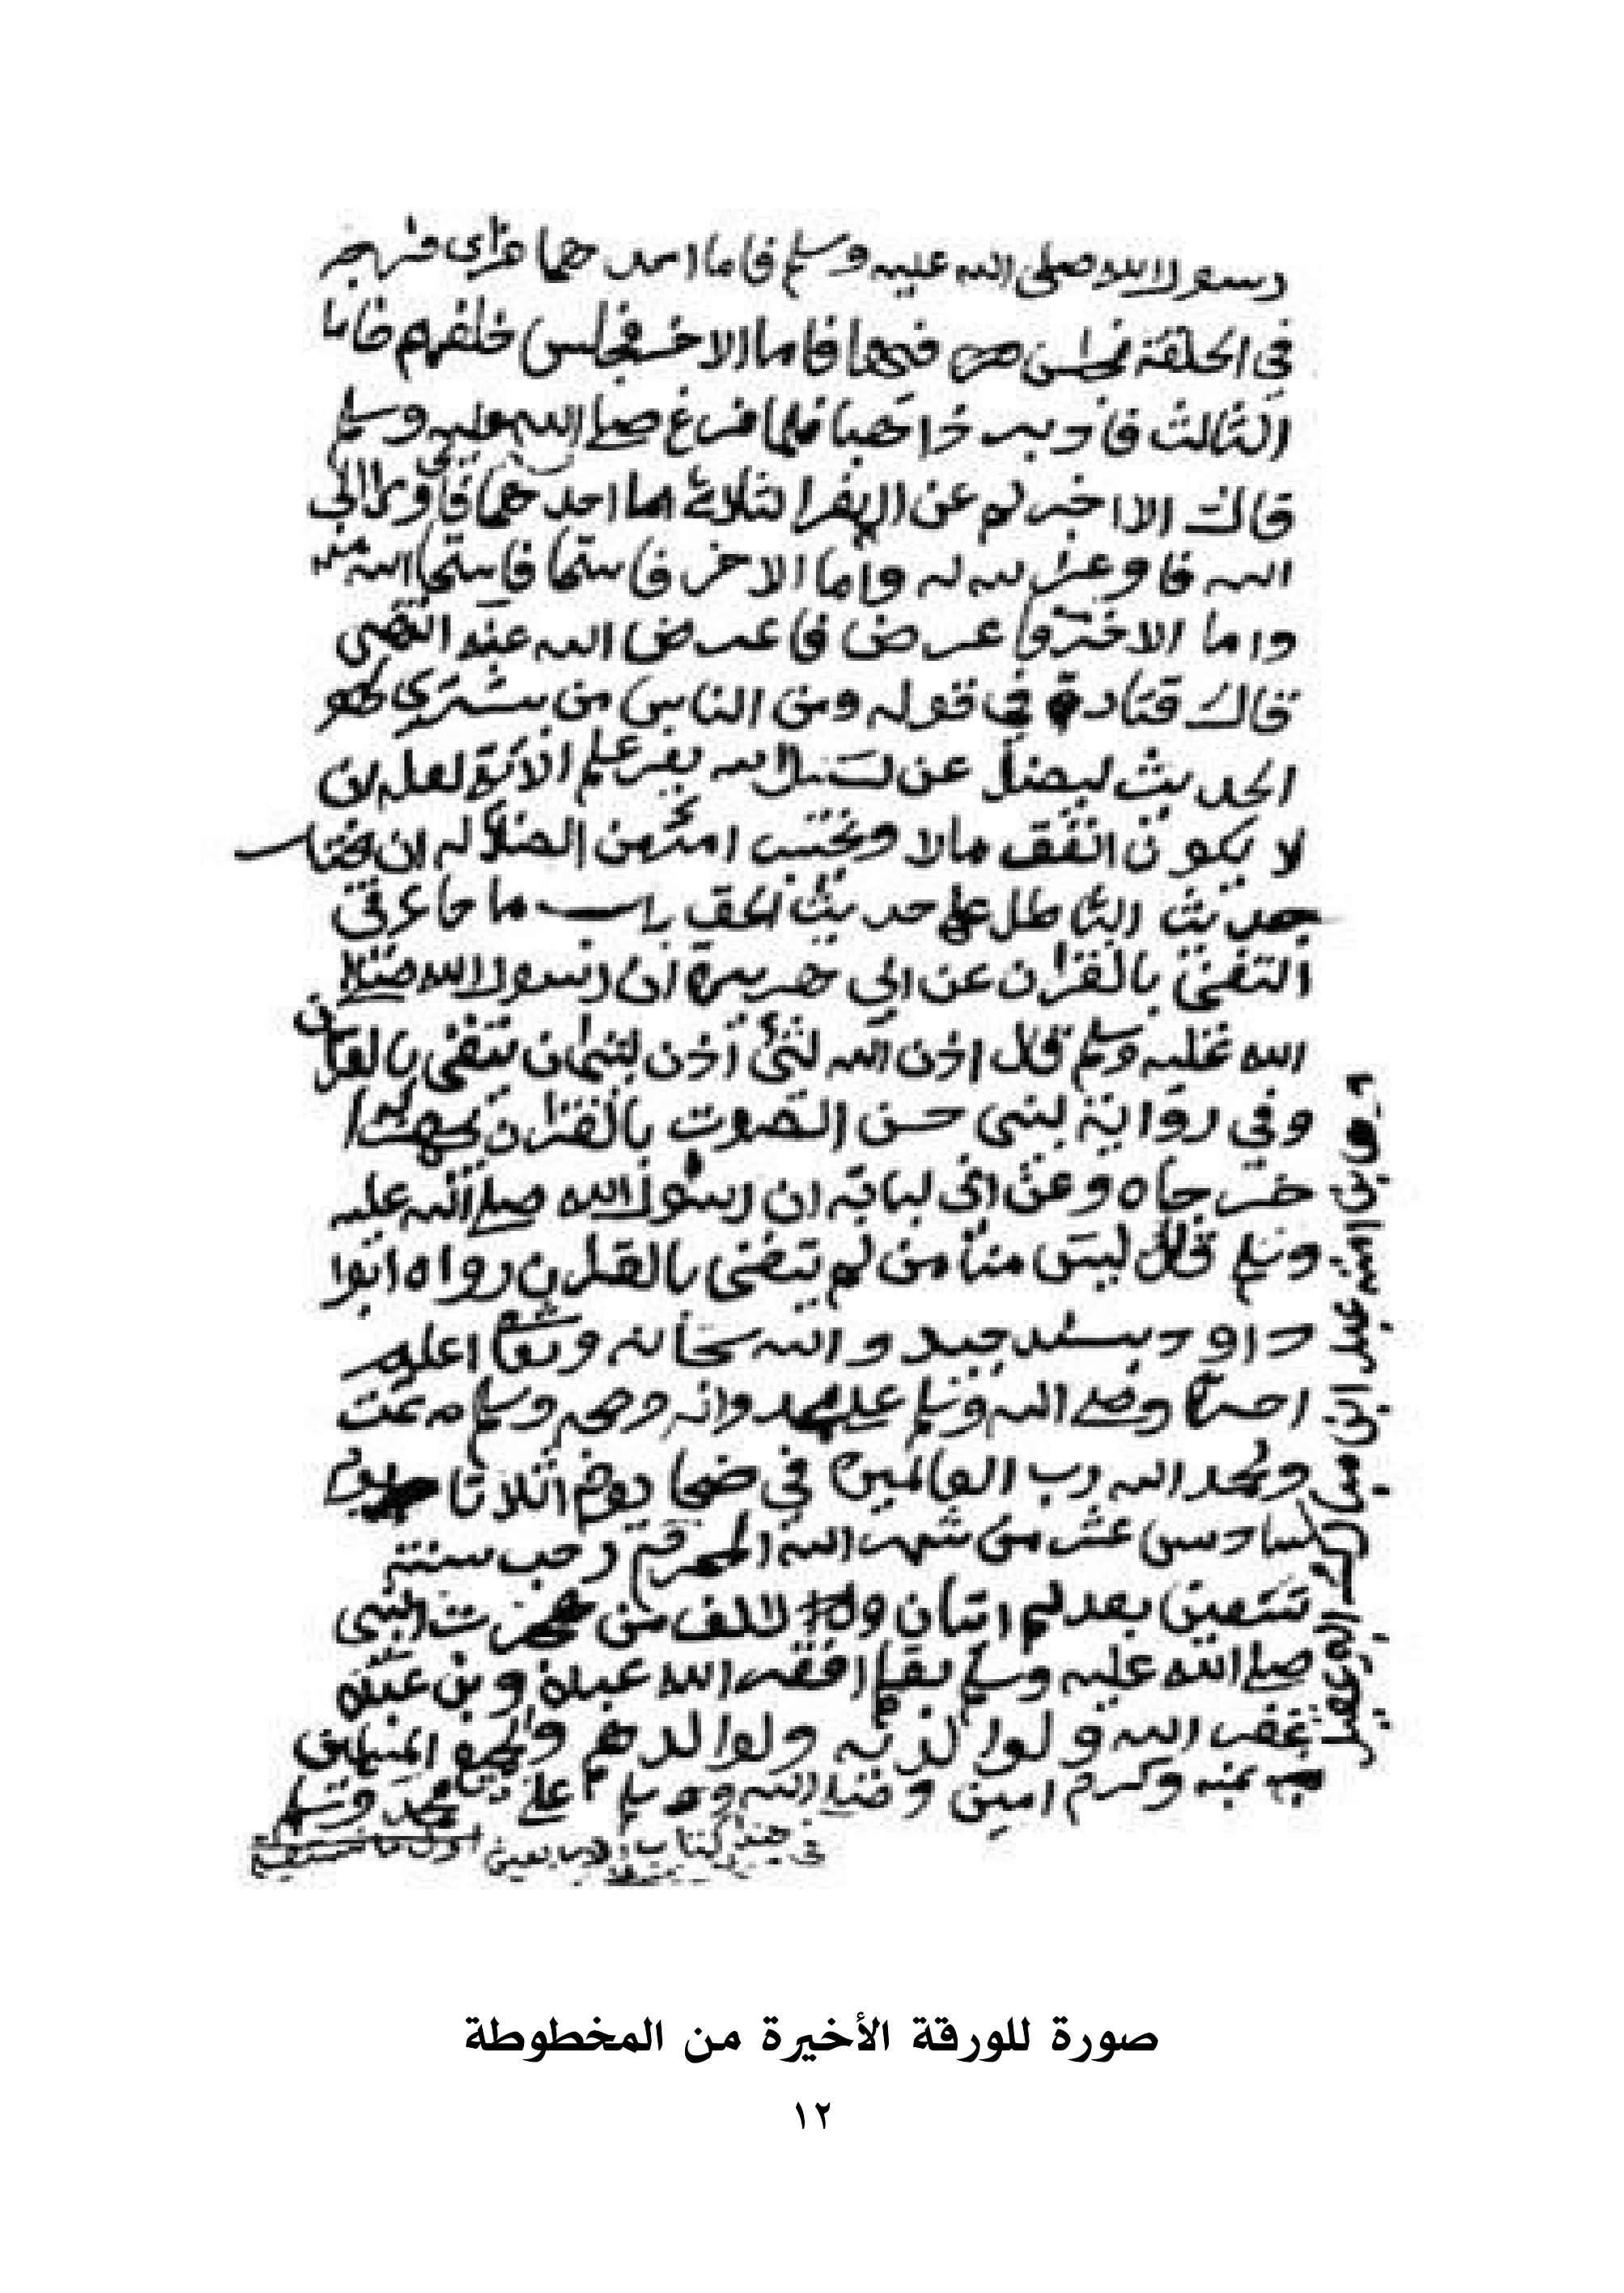 رسول الله صلى الله عليه وسلم فاما احدهما فراى فرجة
في الحلقة فجلس فيها فاما الاخر فجلس خلفهم فاما
الثالث فادبر ذاهبا فلما فرغ صلى الله عليه وسلم
قال الا اخبركم عن النفر الثلاثة اما احدهما فاوى الى
الله فاوه الله له واما الاخر فاستحا فاستحا الله منه
واما الاخر فاعرض فاعرض الله عنه انتهى
قال قتادة في قوله ومن الناس من يشتري لهو
الحديث ليضل عن سبيل الله بغير علم الاية لعله ان
لا يكون انفق مالا وبحسب امرئ من الضلاله ان يختار
حديث الباطل على حديث الحق باب ما جاء في
التغني بالقران عن ابي هريرة ان رسول الله صلى
الله عليه وسلم قال ما اذن الله لشئ ما اذن لنبي ان يتغنى بالقران
وفي رواية لنبي حسن الصوت بالقران يجهر به ا
خرجاه وعن ابي لبابة ان رسول الله صلى الله عليه
وسلم قال ليس منا من لم يتغنى بالقران رواه ابوا
داود بسند جيد والله سبحانه وتعا اعلم
اخره وصلى الله وسلم على محمد واله وصحبه وسلم تمت
والحمد لله رب العالمين في ضحا يوم الثلاثا يوم
سادس عشر من شهر الله المحرم رجب سنة
تسعين بعد اثنان والالف من هجرت النبي
صلى الله عليه وسلم بقلم افقر الله عبده وبن عبده
غفر الله له ولوالديه ولوالديهم والجميع المسلمين
بمنه وكرم امين وصلى الله وسلم على محمد وسلم
صورة للورقة الأخيرة من المخطوطة
١٢